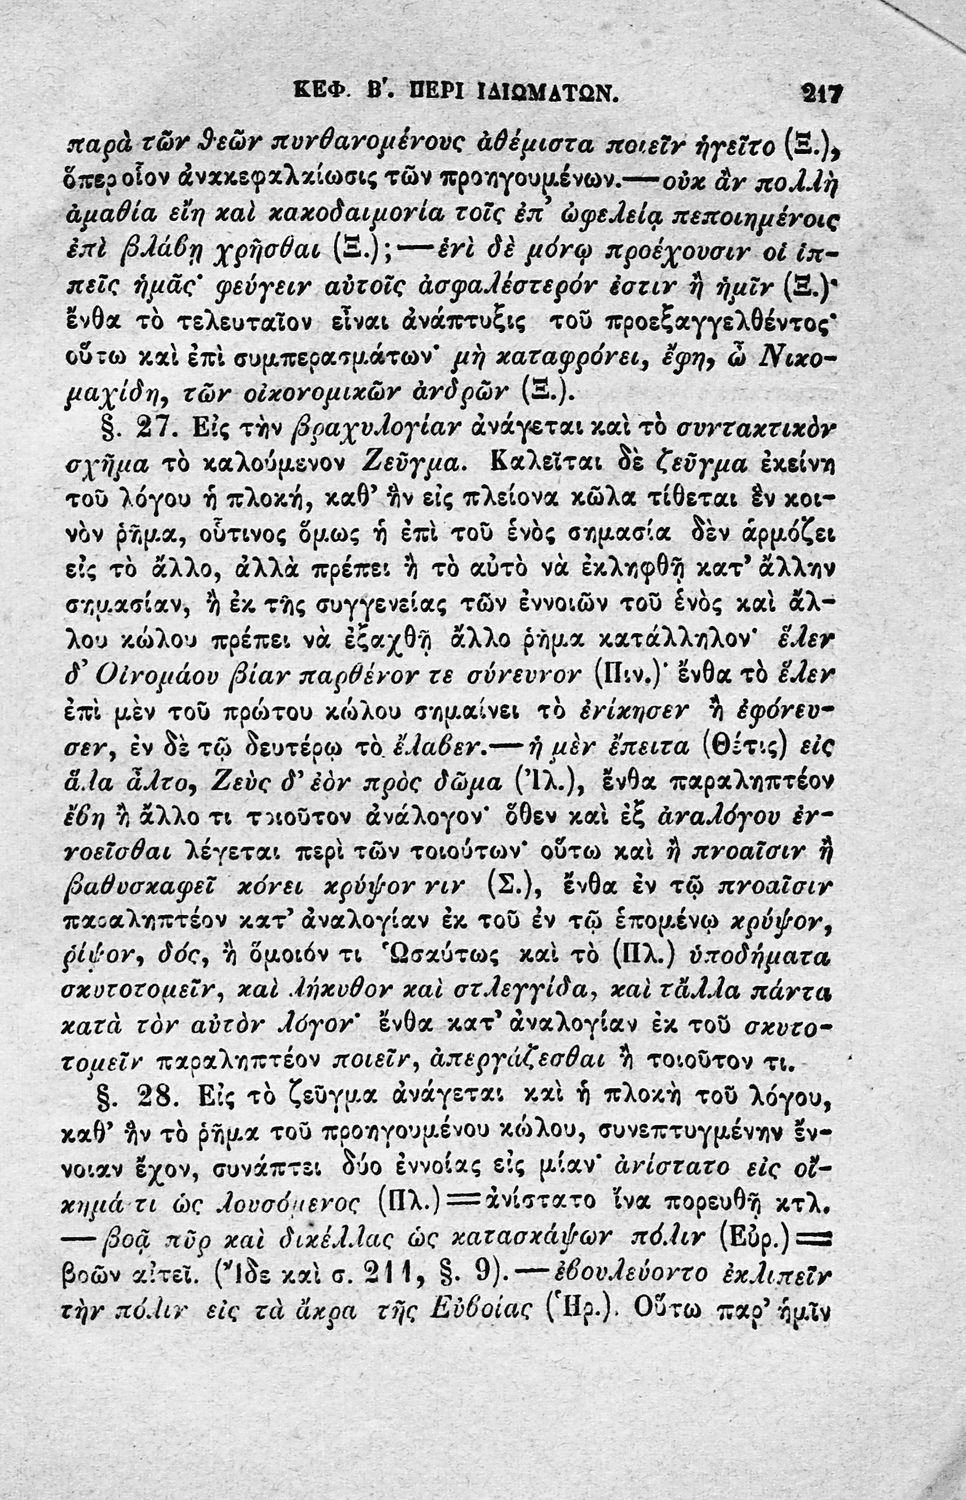 ΚΕΦ. Β'. ΠΕΡΙ ΙΔΙΩΜΑΤΩΝ. 217
παρὰ τῶν θεῶν πυνθανομένους ἀθέμιστα ποιεῖν ἡγεῖτο (Ξ.),
ὅπερ οἷον ἀνακεφαλαίωσις τῶν προηγουμένων.—οὐκ ἂν πολλὴ
ἀμαθία εἴη καὶ κακοδαιμονία τοῖς ἐπ' ὠφελείᾳ πεποιημένοις
ἐπὶ βλάβῃ χρῆσθαι (Ξ.);—ἑνὶ δὲ μόνῳ προέχουσιν οἱ ἱπ-
πεῖς ἡμᾶς· φεύγειν αὐτοῖς ἀσφαλέστερόν ἐστιν ἢ ἡμῖν (Ξ.)·
ἔνθα τὸ τελευταῖον εἶναι ἀνάπτυξις τοῦ προεξαγγελθέντος·
οὕτω καὶ ἐπὶ συμπερασμάτων· μὴ καταφρόνει, ἔφη, ὦ Νικο-
μαχίδη, τῶν οἰκονομικῶν ἀνδρῶν (Ξ.).
§. 27. Εἰς τὴν βραχυλογίαν ἀνάγεται καὶ τὸ συντακτικὸν
σχῆμα τὸ καλούμενον Ζεῦγμα. Καλεῖται δὲ ζεῦγμα ἐκείνη
τοῦ λόγου ἡ πλοκή, καθ' ἣν εἰς πλείονα κῶλα τίθεται ἓν κοι-
νὸν ῥῆμα, οὗτινος ὅμως ἡ ἐπὶ τοῦ ἑνὸς σημασία δὲν ἁρμόζει
εἰς τὸ ἄλλο, ἀλλὰ πρέπει ἢ τὸ αὐτὸ νὰ ἐκληφθῇ κατ' ἄλλην
σημασίαν, ἢ ἐκ τῆς συγγενείας τῶν ἐννοιῶν τοῦ ἑνὸς καὶ ἄλ-
λου κώλου πρέπει νὰ ἐξαχθῇ ἄλλο ῥῆμα κατάλληλον· ἕλεν
δ' Οἰνομάου βίαν παρθένον τε σύνευνον (Πιν.)· ἔνθα τὸ ἕλεν
ἐπὶ μὲν τοῦ πρώτου κώλου σημαίνει τὸ ἐνίκησεν ἢ ἐφόνευ-
σεν, ἐν δὲ τῷ δευτέρῳ τὸ ἔλαβεν.—ἡ μὲν ἔπειτα (Θέτις) εἰς
ἅλα ἆλτο, Ζεὺς δ' ἑὸν πρὸς δῶμα (Ἰλ.), ἔνθα παραληπτέον
ἔβη ἢ ἄλλο τι τοιοῦτον ἀνάλογον· ὅθεν καὶ ἐξ ἀναλόγου ἐν-
νοεῖσθαι λέγεται περὶ τῶν τοιούτων· οὕτω καὶ ἢ πνοαῖσιν ἢ
βαθυσκαφεῖ κόνει κρύψον νιν (Σ.), ἔνθα ἐν τῷ πνοαῖσιν
παραληπτέον κατ' ἀναλογίαν ἐκ τοῦ ἐν τῷ ἑπομένῳ κρύψον,
ῥίψον, δός, ἢ ὅμοιόν τι Ὡσαύτως καὶ τὸ (Πλ.) ὑποδήματα
σκυτοτομεῖν, καὶ λήκυθον καὶ στλεγγίδα, καὶ τἄλλα πάντα
κατὰ τὸν αὐτὸν λόγον· ἔνθα κατ' ἀναλογίαν ἐκ τοῦ σκυτο-
τομεῖν παραληπτέον ποιεῖν, ἀπεργάζεσθαι ἢ τοιοῦτον τι.
§. 28. Εἰς τὸ ζεῦγμα ἀνάγεται καὶ ἡ πλοκὴ τοῦ λόγου,
καθ' ἣν τὸ ῥῆμα τοῦ προηγουμένου κώλου, συνεπτυγμένην ἔν-
νοιαν ἔχον, συνάπτει δύο ἐννοίας εἰς μίαν· ἀνίστατο εἰς οἴ-
κημά τι ὡς λουσόμενος (Πλ.)=ἀνίστατο ἵνα πορευθῇ κτλ.
—βοᾷ πῦρ καὶ δικέλλας ὡς κατασκάψων πόλιν (Εὐρ.)=
βοῶν αἰτεῖ. (Ἴδε καὶ σ. 211, §. 9).—ἐβουλεύοντο ἐκλιπεῖν
τὴν πόλιν εἰς τὰ ἄκρα τῆς Εὐβοίας (Ἡρ.). Οὕτω παρ' ἡμῖν